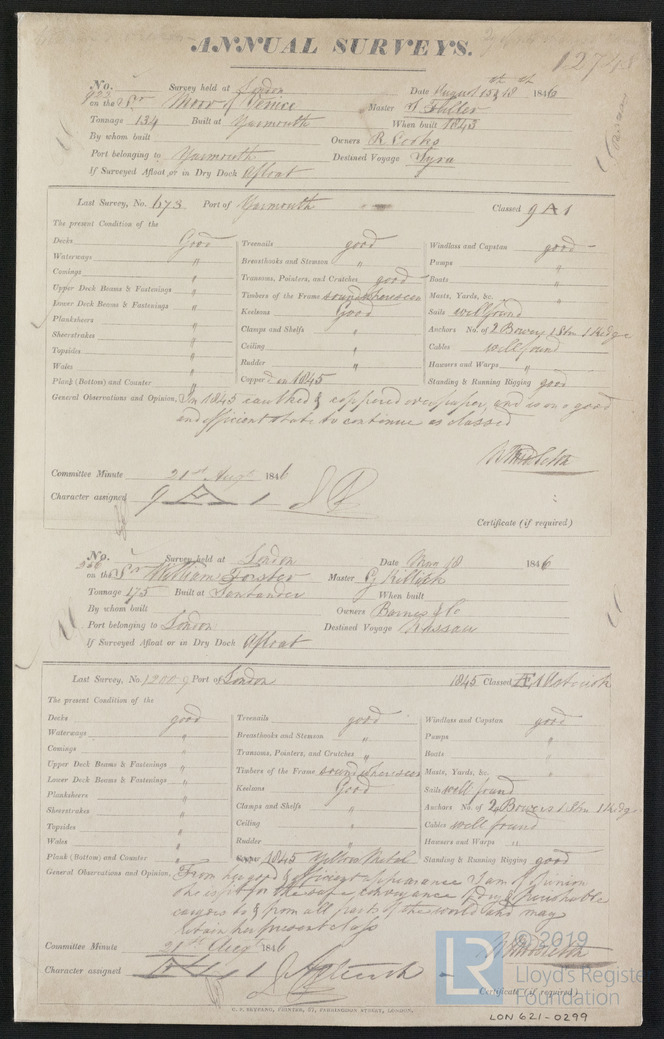 ANNUAL SURVEYS. 12748
No. 922 Survey held at London Date August 15 & 18 1846
on the Sr Moor of Venice Master J Fuller
Tonnage 134 Built at Yarmouth When built 1843
By whom built Owners R
Port belonging to Yarmouth Destined Voyage Syra
If Surveyed Afloat or in Dry Dock Afloat
Last Survey, No. 673 Port of Yarmouth Classed 9 A 1
The present Condition of the
Decks Good Treenails good Windlass and Capstan good
Waterways " Breasthooks and Stemson " Pumps "
Comings " Transoms, Pointers, and Crutches good Boats "
Upper Deck Beams & Fastenings " Timbers of the Frame sound where seen Masts, Yards, &c. "
Lower Deck Beams & Fastenings " Keelsons Good Sails well found
Planksheers " Clamps and Shelfs " Anchors No. of 2 Bowers 1 Stm 1 Kedge
Sheerstrakes " Ceiling " Cables well found
Topsides " Rudder " Hawsers and Warps "
Wales " Copperd in 1845 Standing & Running Rigging good
Plank (Bottom) and Counter "
General Observations and Opinion, In 1845 caulked & coppered over paper, and is in a good
and efficient state to continue as classed
Committee Minute 21st Augt 1846
Character assigned 9 A 1
Certificate (if required)
No. 366 Survey held at London Date 18 1846
on the Sr William Forster Master G
Tonnage 175 Built at Santander When built
By whom built Owners Barnes & Co
Port belonging to London Destined Voyage Nassau
If Surveyed Afloat or in Dry Dock Afloat
Last Survey, No. 12009 Port of London 1845 Classed Æ 1
The present Condition of the
Decks good Treenails good Windlass and Capstan good
Waterways " Breasthooks and Stemson " Pumps "
Comings " Transoms, Pointers, and Crutches " Boats "
Upper Deck Beams & Fastenings " Timbers of the Frame sound where seen Masts, Yards, &c. "
Lower Deck Beams & Fastenings " Keelsons Good Sails well found
Planksheers " Clamps and Shelfs " Anchors No. of 2 Bowers 1 Stm 1 Kedge
Sheerstrakes " Ceiling " Cables well found
Topsides " Rudder " Hawsers and Warps "
Wales " 1845 Yellow Metal Standing & Running Rigging good
Plank (Bottom) and Counter "
General Observations and Opinion, From her good & efficient appearance I am of opinion
she is fit for the safe conveyance of dry & perishable
cargoes to & from all parts of the world and may
retain her present class
Committee Minute 21st Augt 1846
Character assigned Æ 1
Certificate (if required)
© 2019
LR Lloyd's Register
Foundation
LON 621-0299